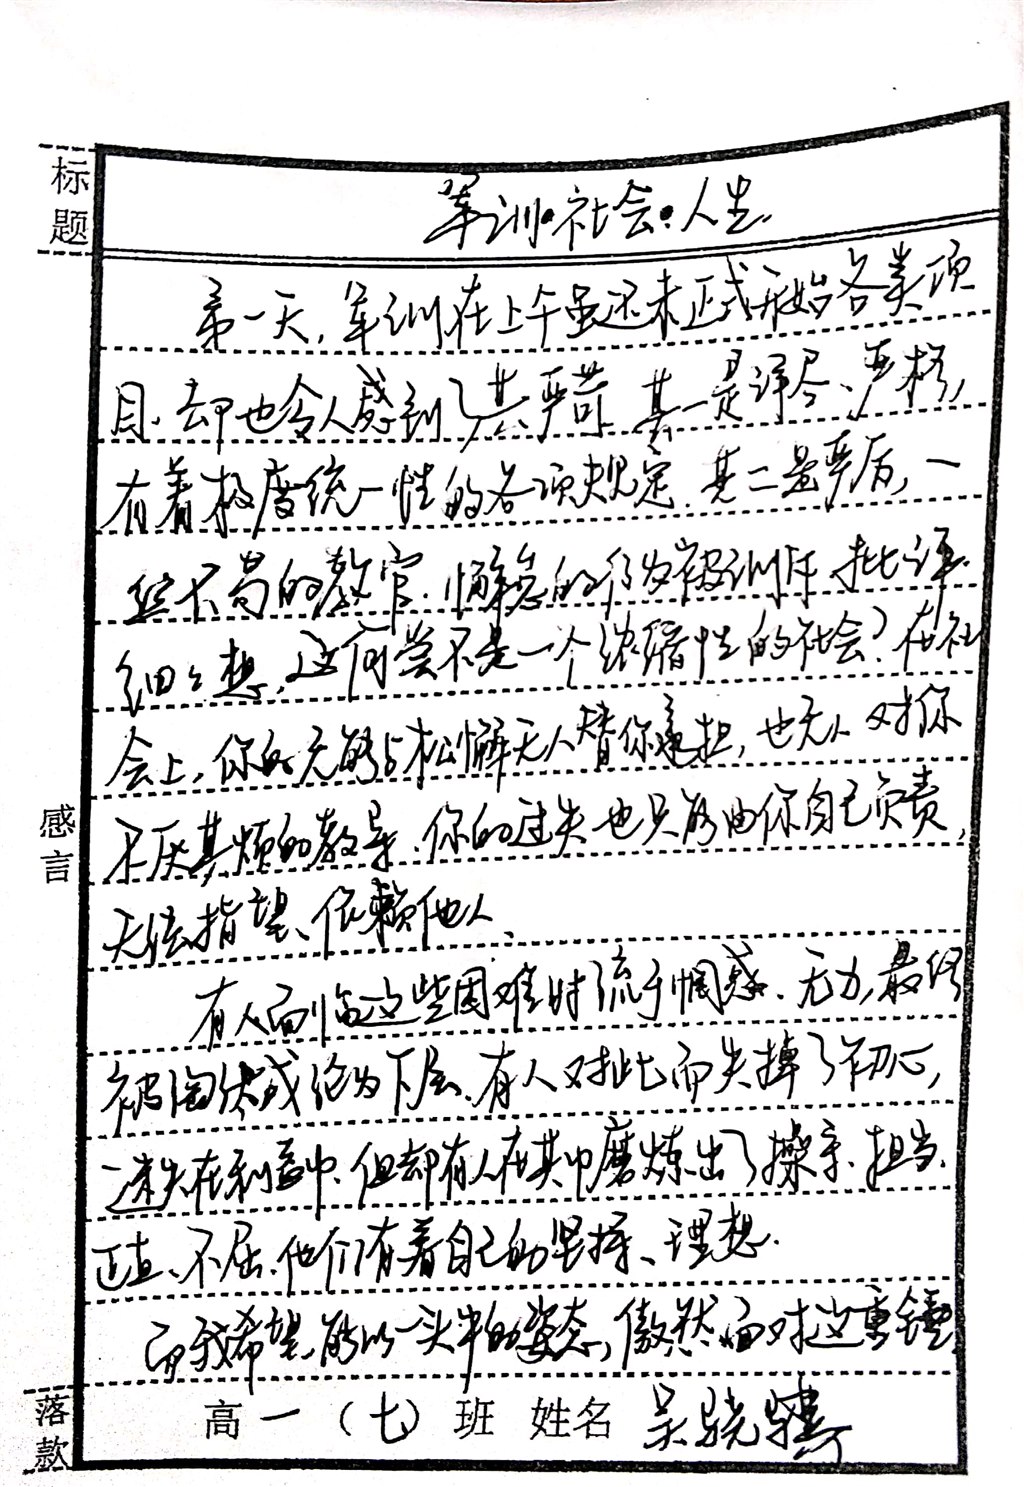 标题
军训·社会·人生
第一天,军训在上午虽还未正式开始各类项
目、却也令人感到了其严苛。其一是详尽、严格,
有着极度统一性的各项规定。其二是严厉,一
丝不苟的教官。懈怠的行为被训斥、批评。
细々想,这何尝不是一个浓缩性的社会?在社
会上,你的无能与松懈无人替你承担,也无人对你
不厌其烦的教导、你的过失也只能由你自己负责,
无法指望、依赖他人。
感言
有人面临这些困难时流于惘惑、无力,最终
被淘汰或沦为下层、有人对此而失掉了初心,
迷失在利益中、但却有人在其中磨炼出了操守、担当、
正直、不屈、他们有着自己的坚持、理想。
而我希望,能以一头牛的姿态,傲然面对这重锤
落款
高一(七)班 姓名 吴骁骕